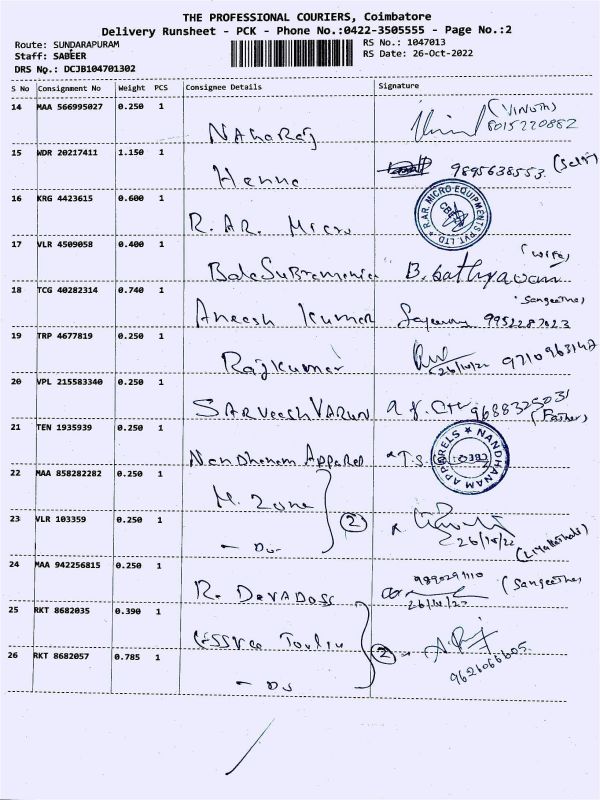 THE PROFESSIONAL COURIERS, Coimbatore
Delivery Runsheet - PCK - Phone No.:0422-3505555 - Page No.:2
Route: SUNDARAPURAM
RS No.: 1047013
Staff: SABEER
RS Date: 26-Oct-2022
DRS No.: DCJB104701302
S No Consignment No Weight PCS Consignee Details Signature
14 MAA 566995027 0.250 1 NAGARAJ (VINOTH)
8015220882
15 WDR 20217411 1.150 1 Henna 9895638553 (Self)
16 KRG 4423615 0.600 1 R. AR. Micro R.AR. MICRO EQUIPMENTS PVT. LTD. CBE
17 VLR 4509058 0.400 1 BalaSubramania B. Sathyavani (wife)
18 TCG 40282314 0.740 1 Aneesh Kumar 9952287023 (Sangeetha)
19 TRP 4677819 0.250 1 Rajkumar 26/10/22 9710963142
20 VPL 215583340 0.250 1 SARVEESH VARUN 9688325031
(Father)
21 TEN 1935939 0.250 1 Nandhanam Apparel T.S. NANDHANAM APPARELS
22 MAA 858282282 0.250 1 M. Zone
23 VLR 103359 0.250 1 - Do - (2) 26/10/22
24 MAA 942256815 0.250 1 R. DEVADOSS 9890291110 (Sangeetha)
26/10/22
25 RKT 8682035 0.390 1
26 RKT 8682057 0.785 1 - Do (2) 9626066605